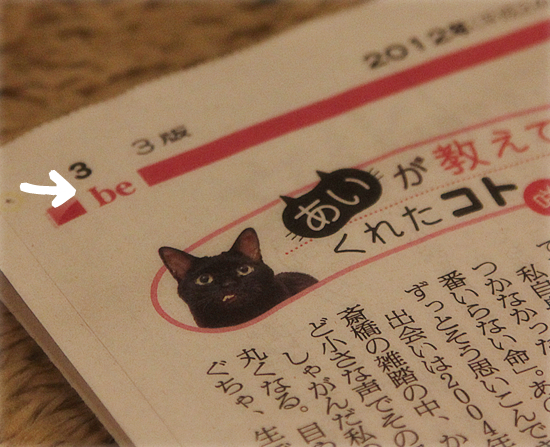 2012年
3 3版
be
あいが教えて
くれたコト
私自
つかなかった
番いらない命」。あ
ずっとそう思いこんで
出会いは2004年
斎橋の雑踏の中、か
ど小さな声でその
しゃがんだ私
丸くなる。目
ぐちゃ、生